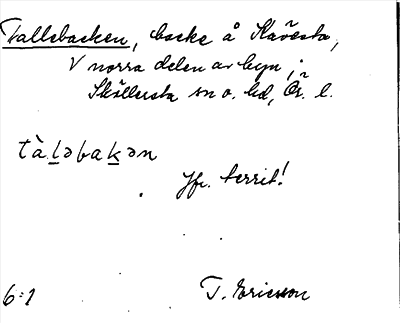 Tallebacken, backe å Kävesta,
V norra delen av byn i
Sköllersta sn o. hd, Ör. l.
tàləbakən
Jfr. territ!
6:1 T. Ericsson